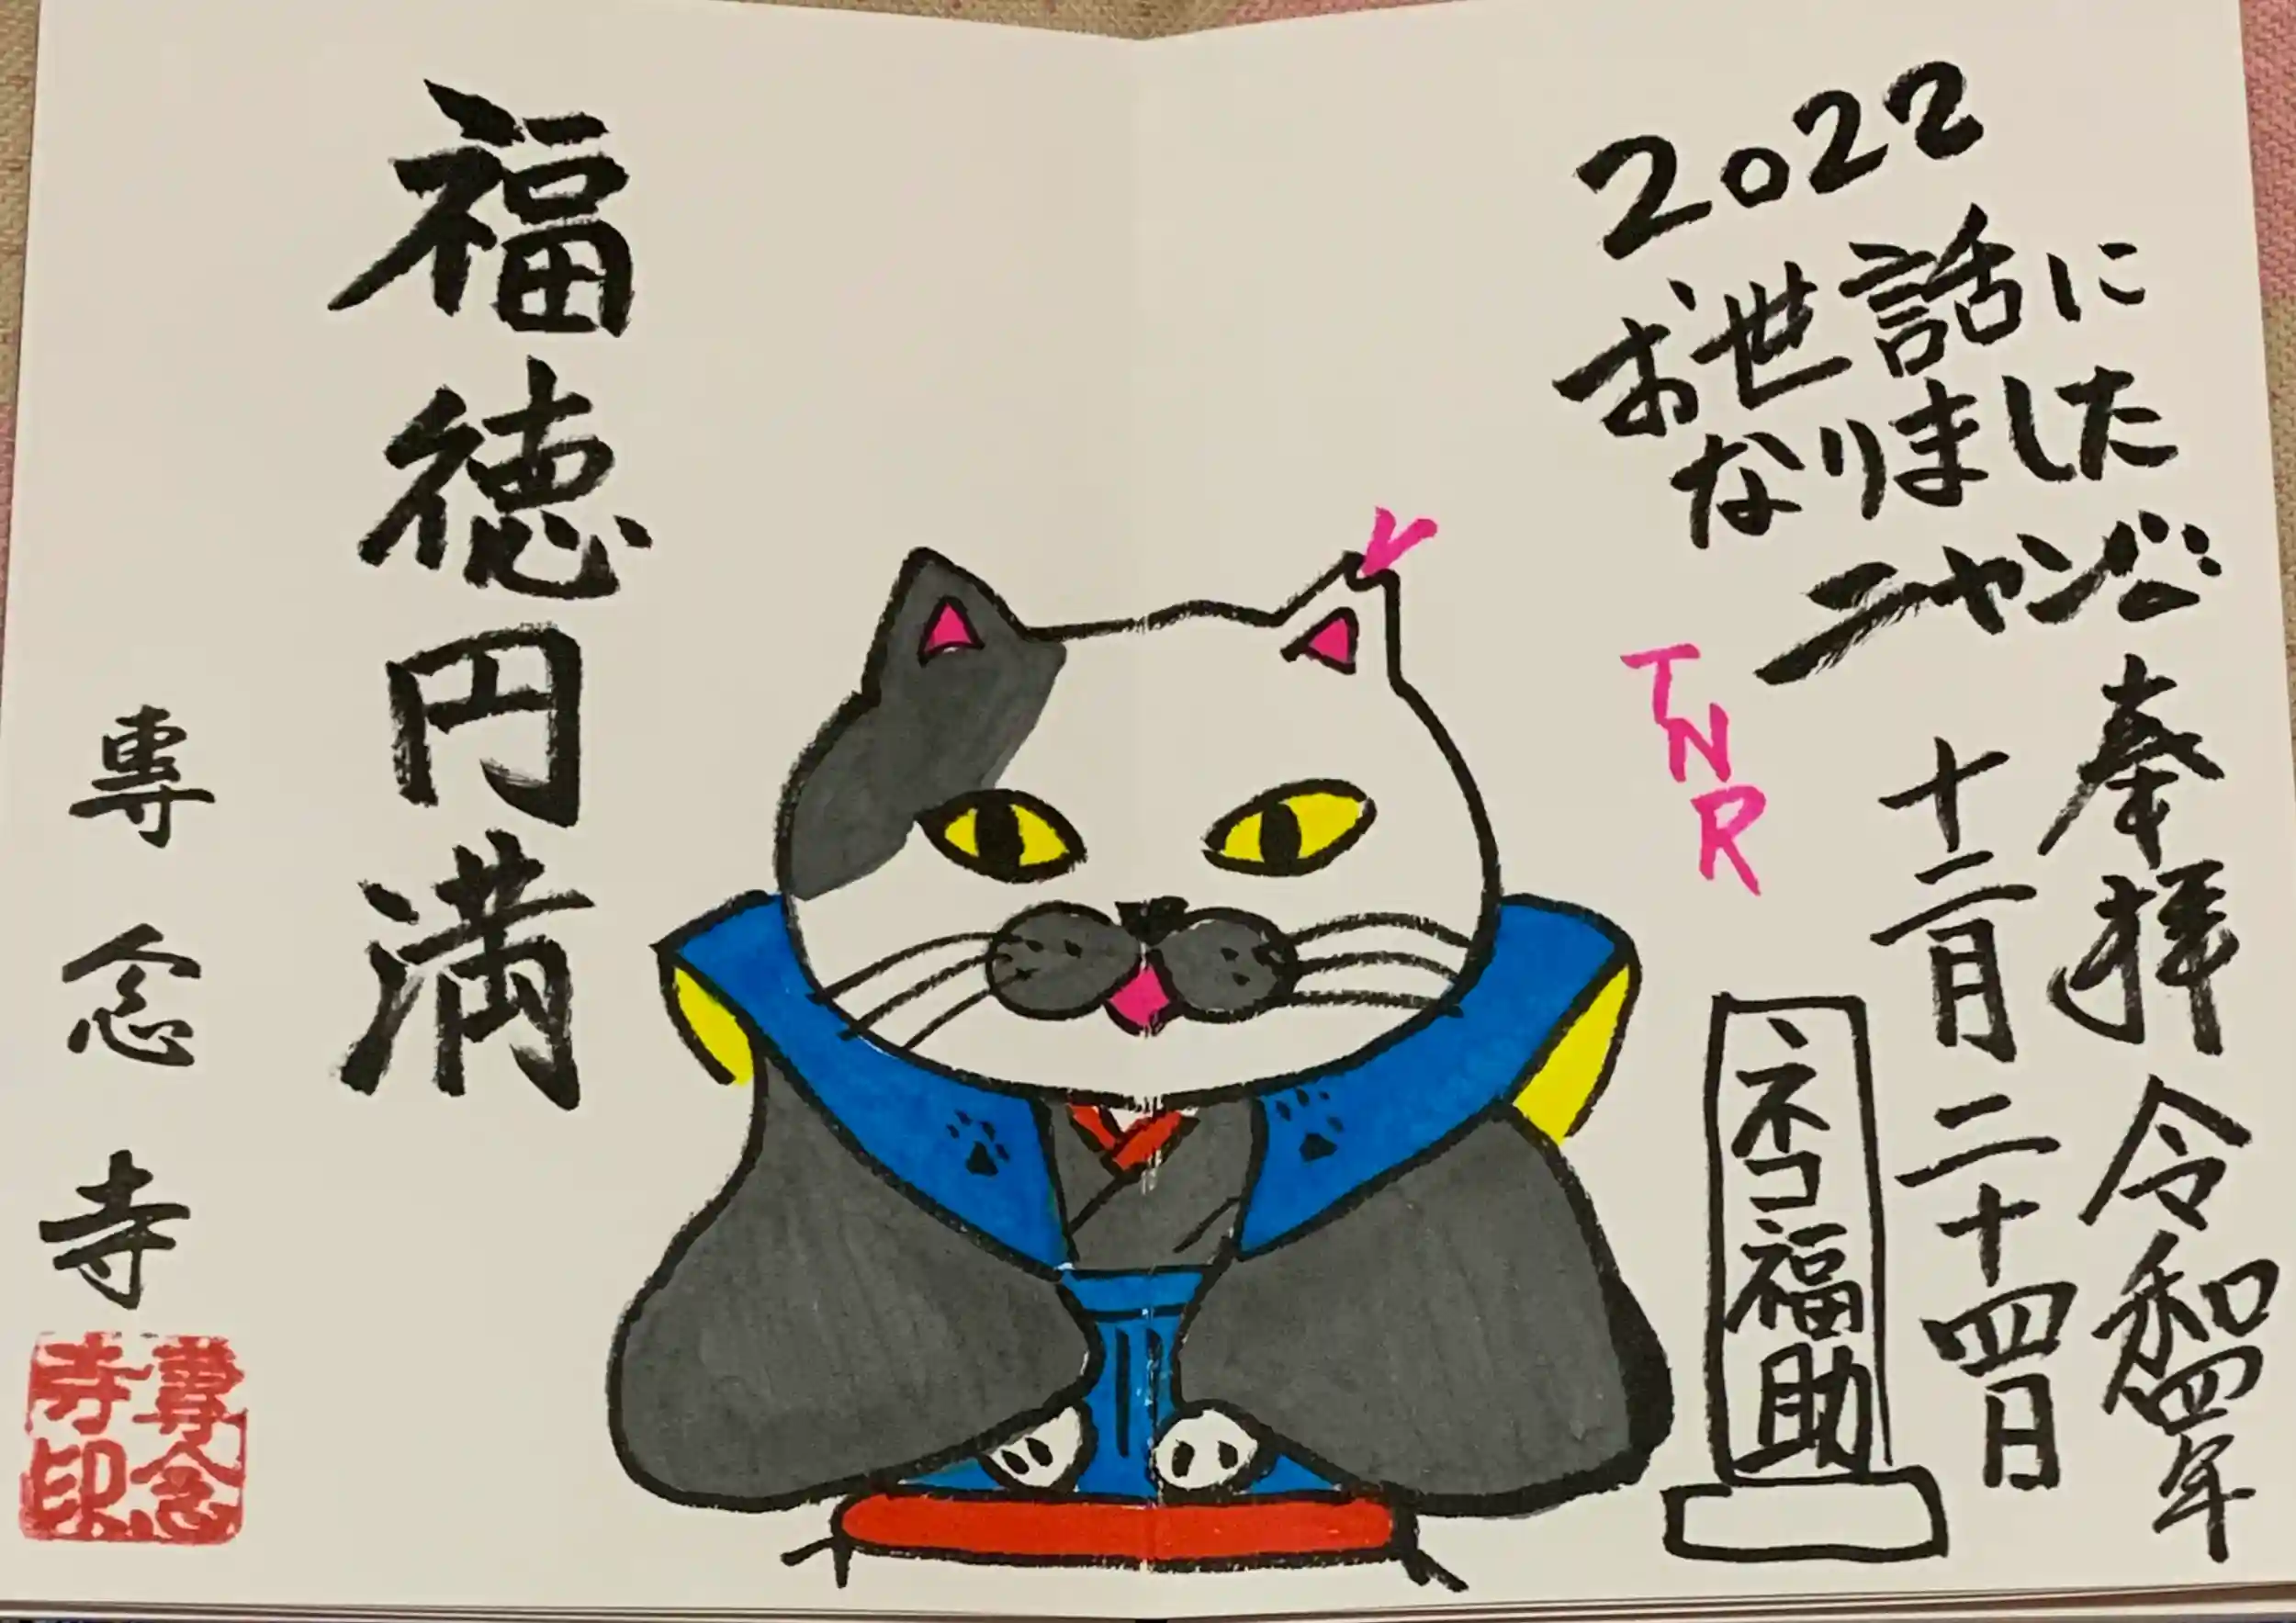 2022
お世話に
なりました
ニャンじゃ
奉拝 令和四年
十二月二十四日
TNR
ネコ福助
福徳円満
專念寺
專念
寺印